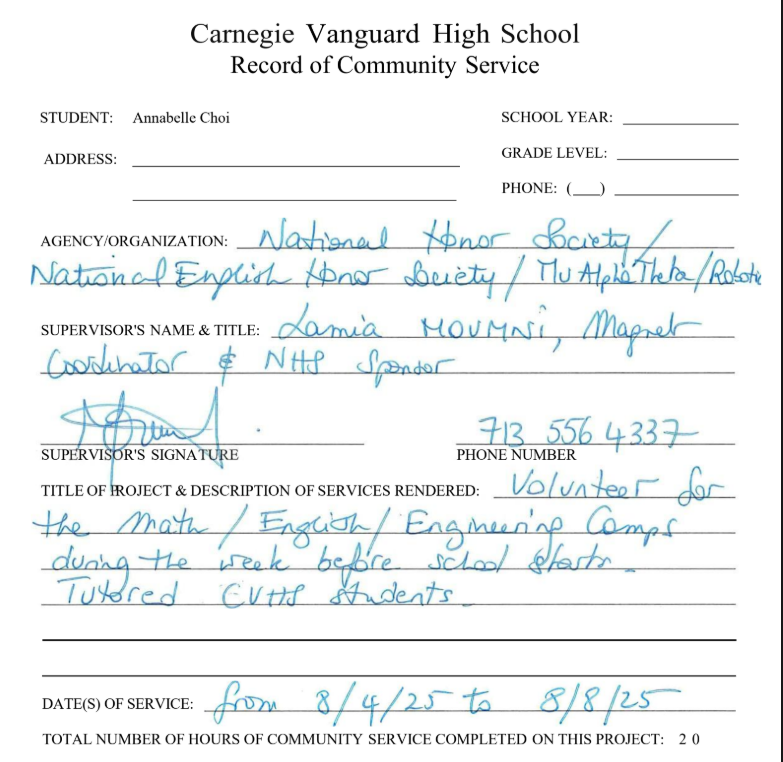 Carnegie Vanguard High School
Record of Community Service
STUDENT: Annabelle Choi
SCHOOL YEAR:
ADDRESS:
GRADE LEVEL:
PHONE: ( )
AGENCY/ORGANIZATION: National Honor Society/
National English Honor Society / Mu Alpha Theta/Robotic
SUPERVISOR'S NAME & TITLE: Lamia MOUMNI, Magnet
Coordinator & NHS Sponsor
713 556 4337
SUPERVISOR'S SIGNATURE PHONE NUMBER
TITLE OF PROJECT & DESCRIPTION OF SERVICES RENDERED: Volunteer for
the Math / English / Engineering Camps
during the week before school starts.
Tutored CVHS students.
DATE(S) OF SERVICE: from 8/4/25 to 8/8/25
TOTAL NUMBER OF HOURS OF COMMUNITY SERVICE COMPLETED ON THIS PROJECT: 20